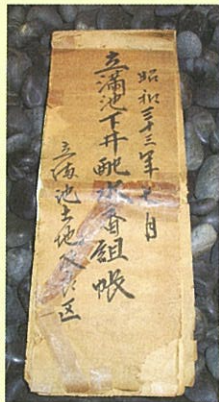 昭和三十三年七月
立満池下井配水番組帳
立満池土地改良区